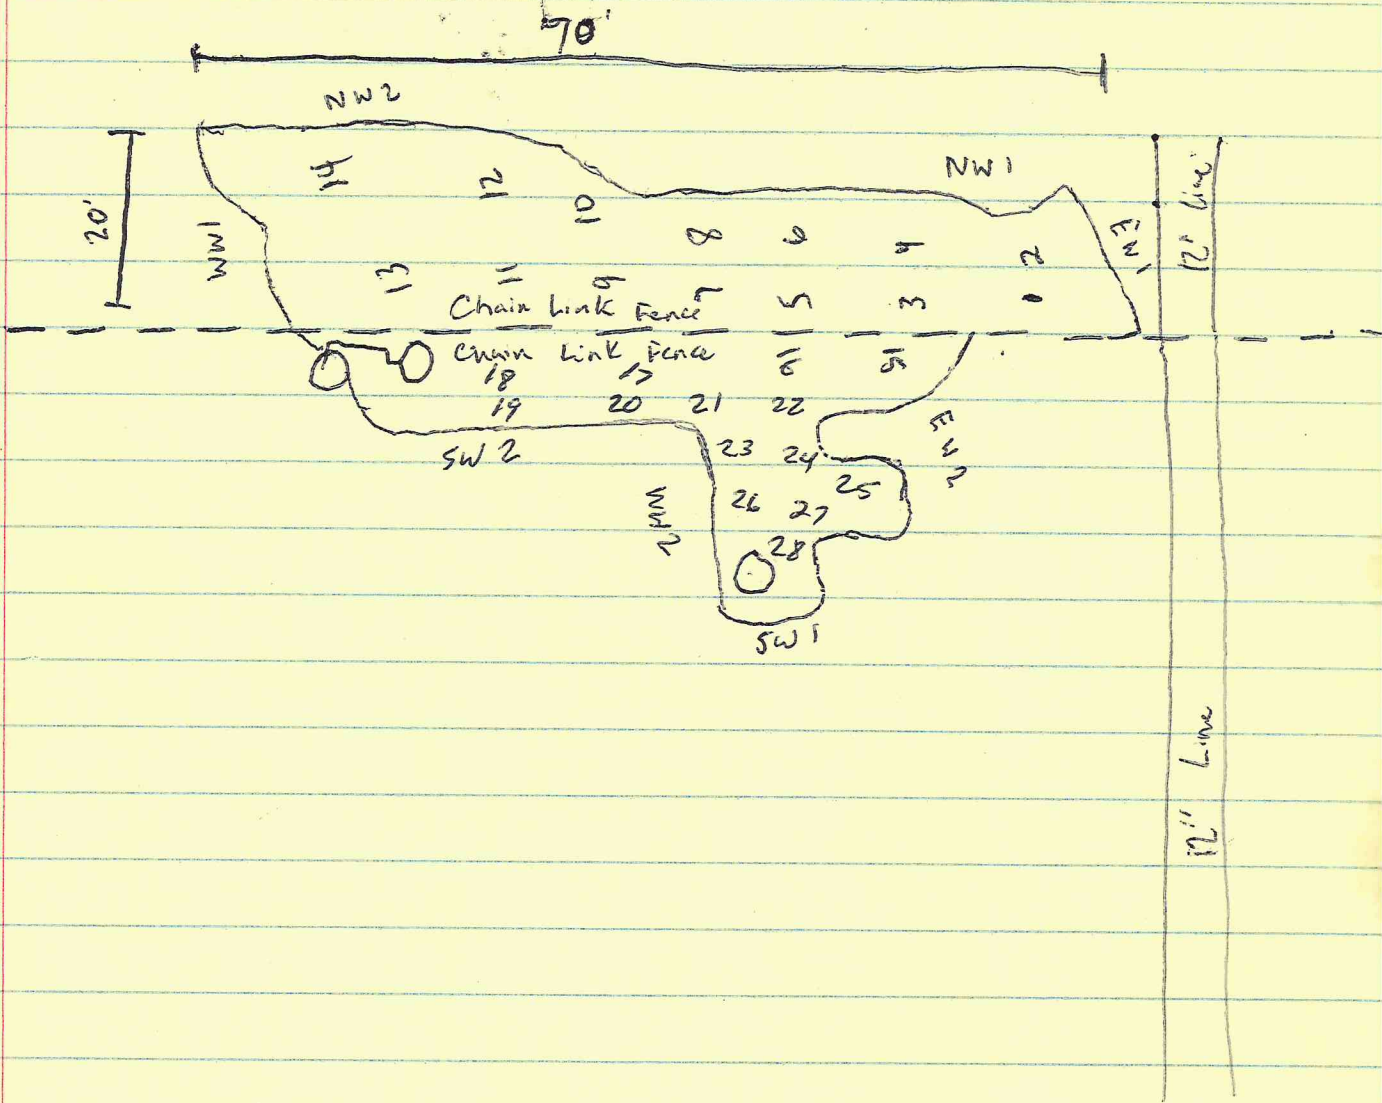 70'
NW2
NW1
20'
WW1
14
12
10
8
6
4
2
EW1
12" Line
13
11
9
7
5
3
1
Chain Link Fence
Chain Link Fence
18
17
16
15
19
20
21
22
EW2
SW2
23
24
25
WW2
26
27
28
SW1
12" Line